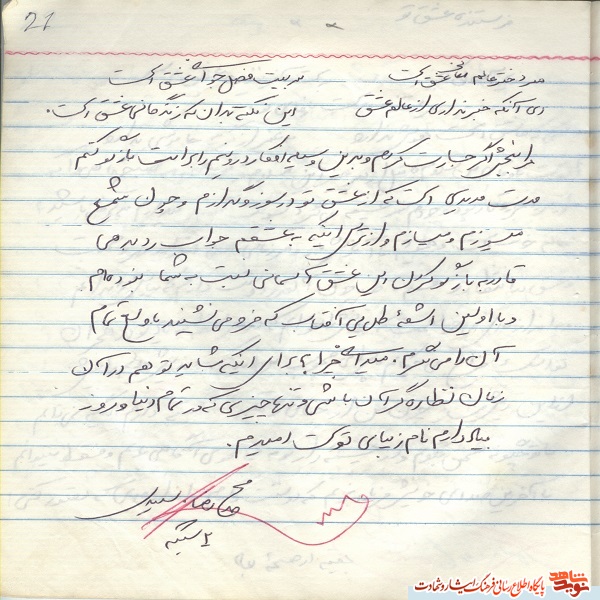 21
سر دختر عالم معانی عشق است سر بیت فصل جوانی عشق است
ای آنکه خبر نداری از عالم عشق این نکته بدان که زندگانی عشق است.
مرا ببخش اگر جسارت کردم و بدین وسیله افکار درونیم را برایت بازگو کنم
مدت مدیدی است که از عشق تو در سوز و گدازم و چون شمع
میسوزم و میسازم و از ترس اینکه به عشقم جواب رد بدهی
قادر به بازگو کردن این عشق آسمانی نسبت به شما نبوده‌ام
و با اولین اشعهٔ طلایی آفتاب که فرو می‌نشیند با ولع تمام
آن را می‌نگرم. میدانی چرا؟ برای اینکه شاید تو هم در آن
زمان نظاره‌گر آن باشی و تنها چیزی که در تمام دنیا و روز
بیاد دارم نام زیبای توست امیدم.
محمدرضا سعیدی
۲ شنبه
نوید شاهد
پایگاه اطلاع رسانی فرهنگ ایثار و شهادت